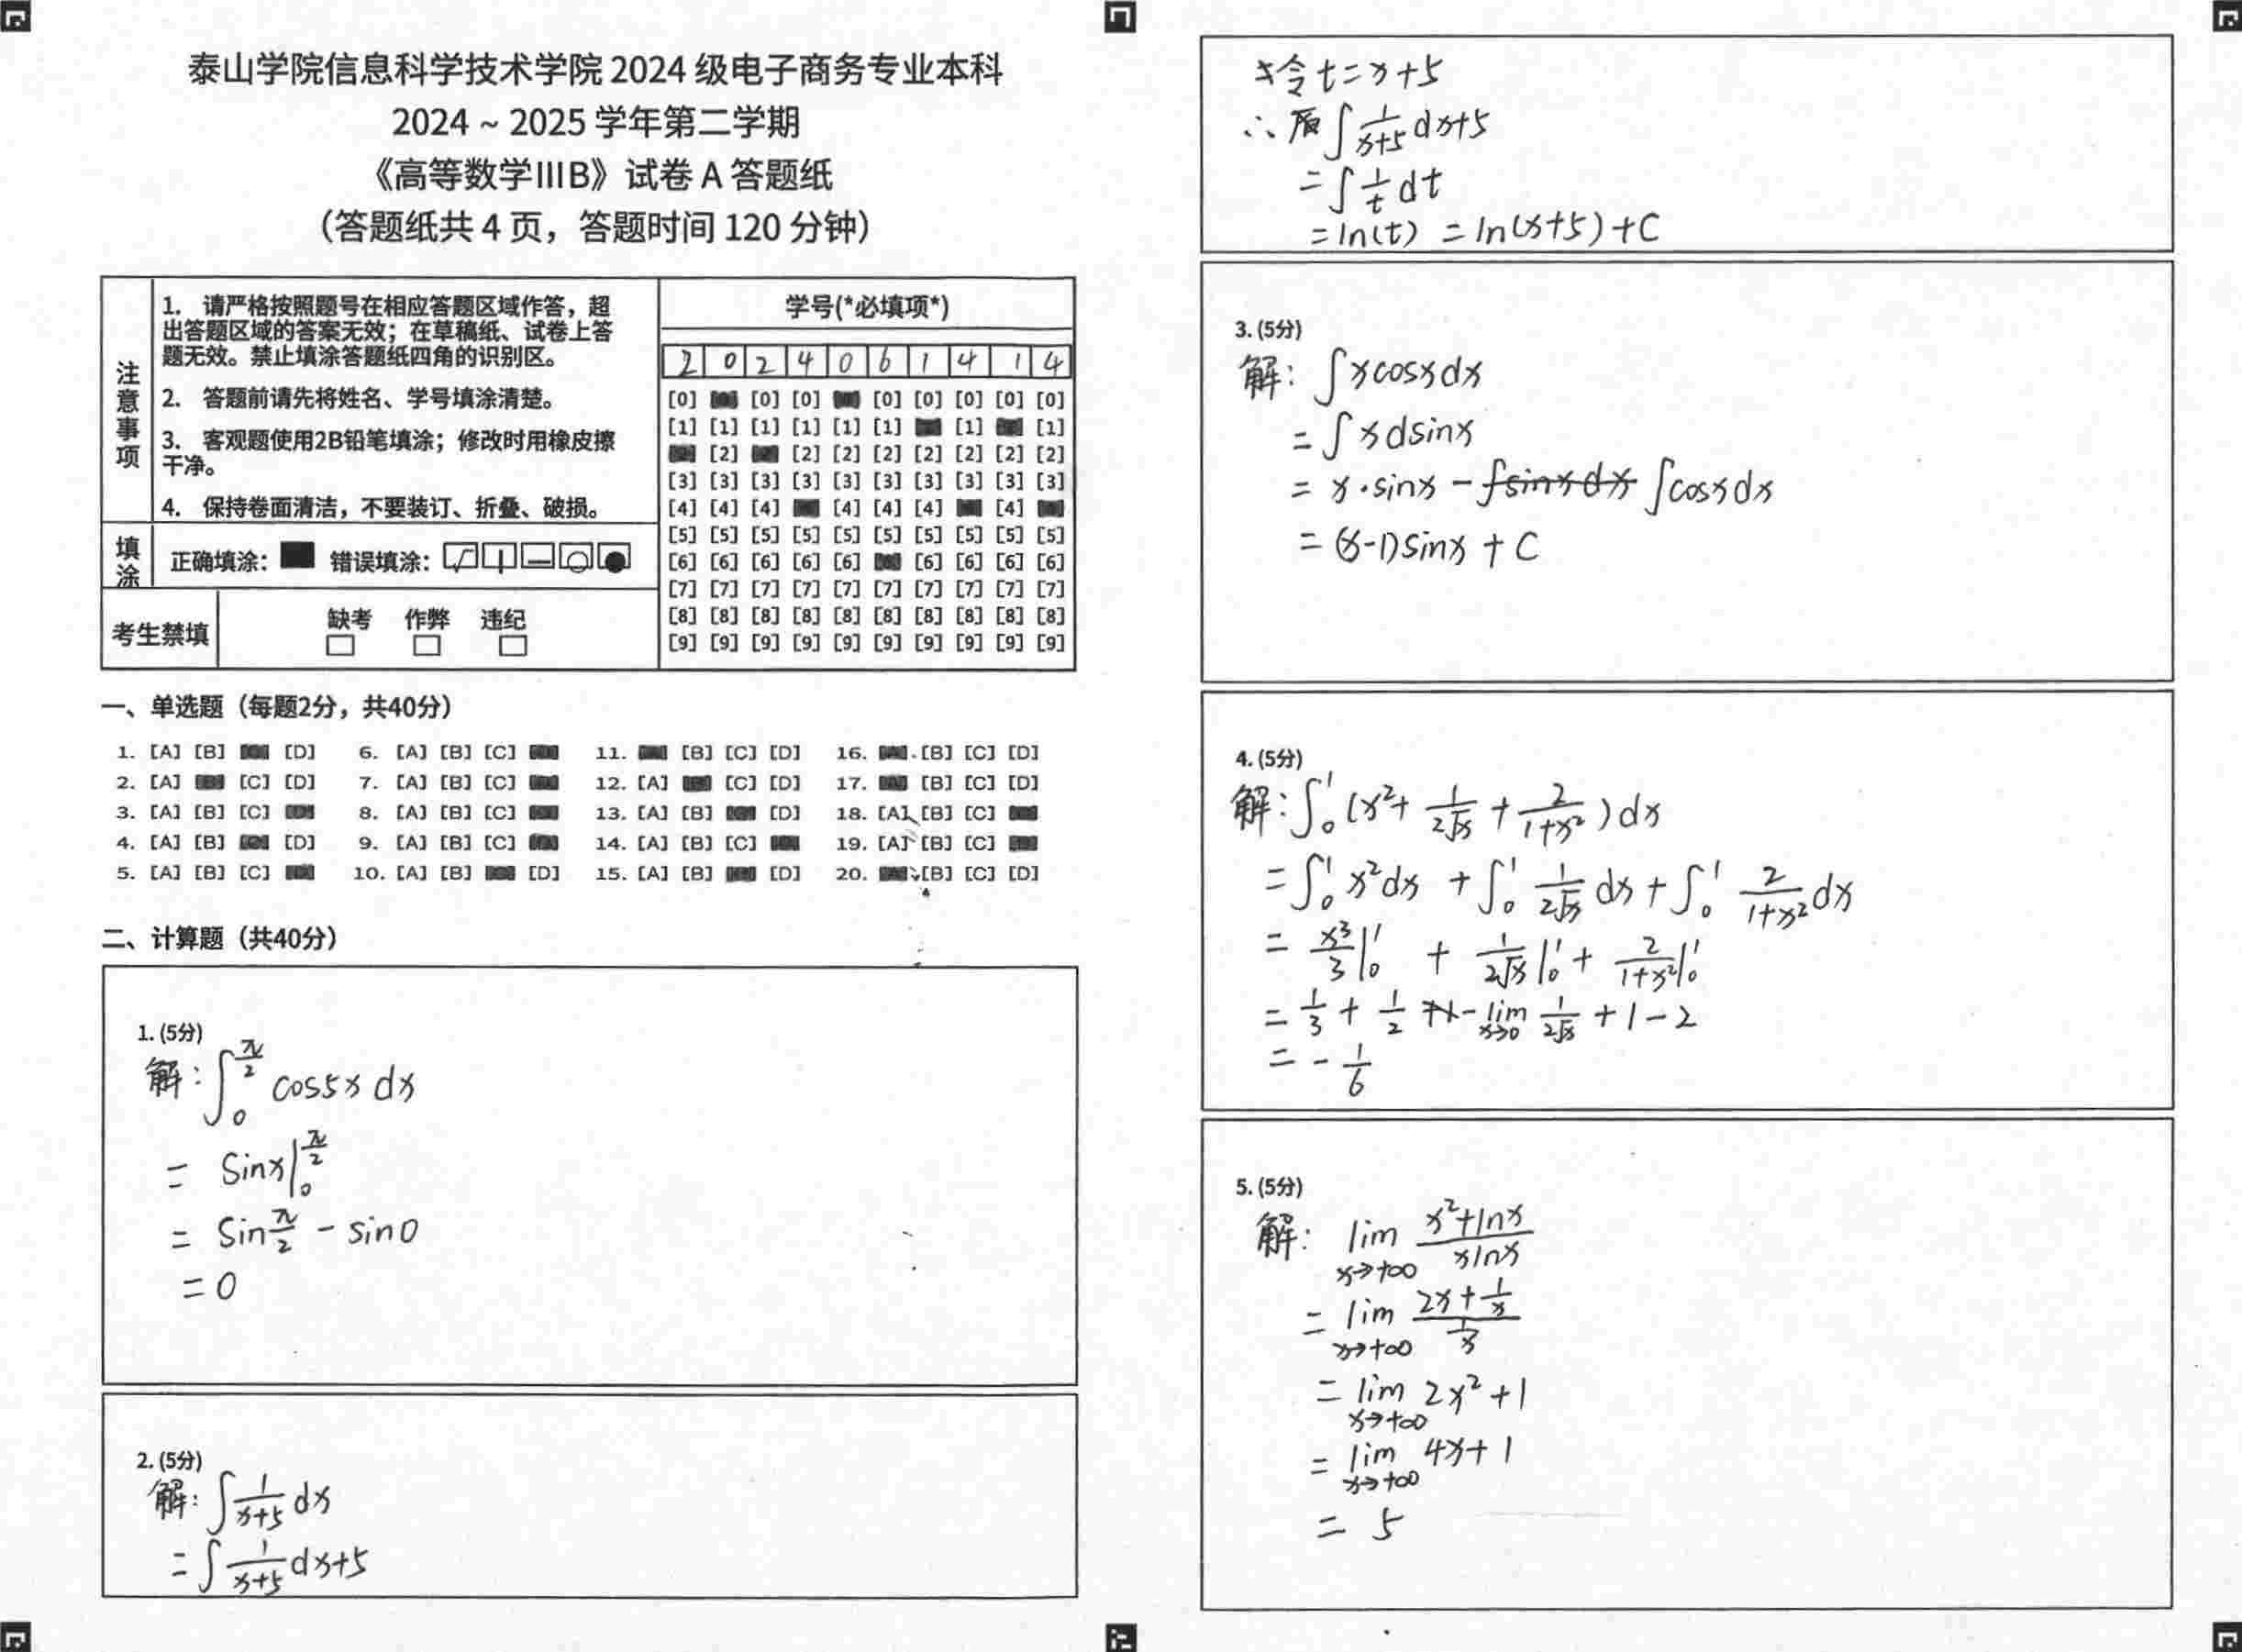 泰山学院信息科学技术学院 2024 级电子商务专业本科
2024 ~ 2025 学年第二学期
《高等数学ⅢB》试卷 A 答题纸
（答题纸共 4 页，答题时间 120 分钟）
注意事项
1. 请严格按照题号在相应答题区域作答，超
出答题区域的答案无效；在草稿纸、试卷上答
题无效。禁止填涂答题纸四角的识别区。
2. 答题前请先将姓名、学号填涂清楚。
3. 客观题使用2B铅笔填涂；修改时用橡皮擦
干净。
4. 保持卷面清洁，不要装订、折叠、破损。
填涂
正确填涂： 错误填涂：
考生禁填
缺考 作弊 违纪
学号(*必填项*)
2 0 2 4 0 6 1 4 1 4
[0] [0] [0] [0] [0] [0] [0] [0]
[1] [1] [1] [1] [1] [1] [1] [1]
[2] [2] [2] [2] [2] [2] [2] [2]
[3] [3] [3] [3] [3] [3] [3] [3] [3] [3]
[4] [4] [4] [4] [4] [4] [4]
[5] [5] [5] [5] [5] [5] [5] [5] [5] [5]
[6] [6] [6] [6] [6] [6] [6] [6] [6]
[7] [7] [7] [7] [7] [7] [7] [7] [7] [7]
[8] [8] [8] [8] [8] [8] [8] [8] [8] [8]
[9] [9] [9] [9] [9] [9] [9] [9] [9] [9]
一、单选题（每题2分，共40分）
1. [A] [B] [D] 6. [A] [B] [C] 11. [B] [C] [D] 16. [B] [C] [D]
2. [A] [C] [D] 7. [A] [B] [C] 12. [A] [C] [D] 17. [B] [C] [D]
3. [A] [B] [C] 8. [A] [B] [C] 13. [A] [B] [D] 18. [A] [B] [C]
4. [A] [B] [D] 9. [A] [B] [C] 14. [A] [B] [C] 19. [A] [B] [C]
5. [A] [B] [C] 10. [A] [B] [D] 15. [A] [B] [D] 20. [B] [C] [D]
二、计算题（共40分）
1. (5分)
解: ∫₀^(π/2) cos5x dx
= sinx|₀^(π/2)
= sin π/2 - sin0
= 0
2. (5分)
解: ∫ 1/(x+5) dx
= ∫ 1/(x+5) dx+5
令 t = x+5
∴ 原 ∫ 1/(x+5) dx+5
= ∫ 1/t dt
= ln(t) = ln(x+5) + C
3. (5分)
解: ∫ x cosx dx
= ∫ x dsinx
= x·sinx - ∫sinx dx ∫cosx dx
= (x-1)sinx + C
4. (5分)
解: ∫₀¹ (x² + 1/(2√x) + 2/(1+x²)) dx
= ∫₀¹ x² dx + ∫₀¹ 1/(2√x) dx + ∫₀¹ 2/(1+x²) dx
= x³/3|₀¹ + 1/(2√x)|₀¹ + 2/(1+x²)|₀¹
= 1/3 + 1/2 - lim x→0 1/(2√x) + 1 - 2
= - 1/6
5. (5分)
解: lim x→+∞ (x²+lnx)/(xlnx)
= lim x→+∞ (2x + 1/x)/(1/x)
= lim x→+∞ 2x² + 1
= lim x→+∞ 4x + 1
= 5